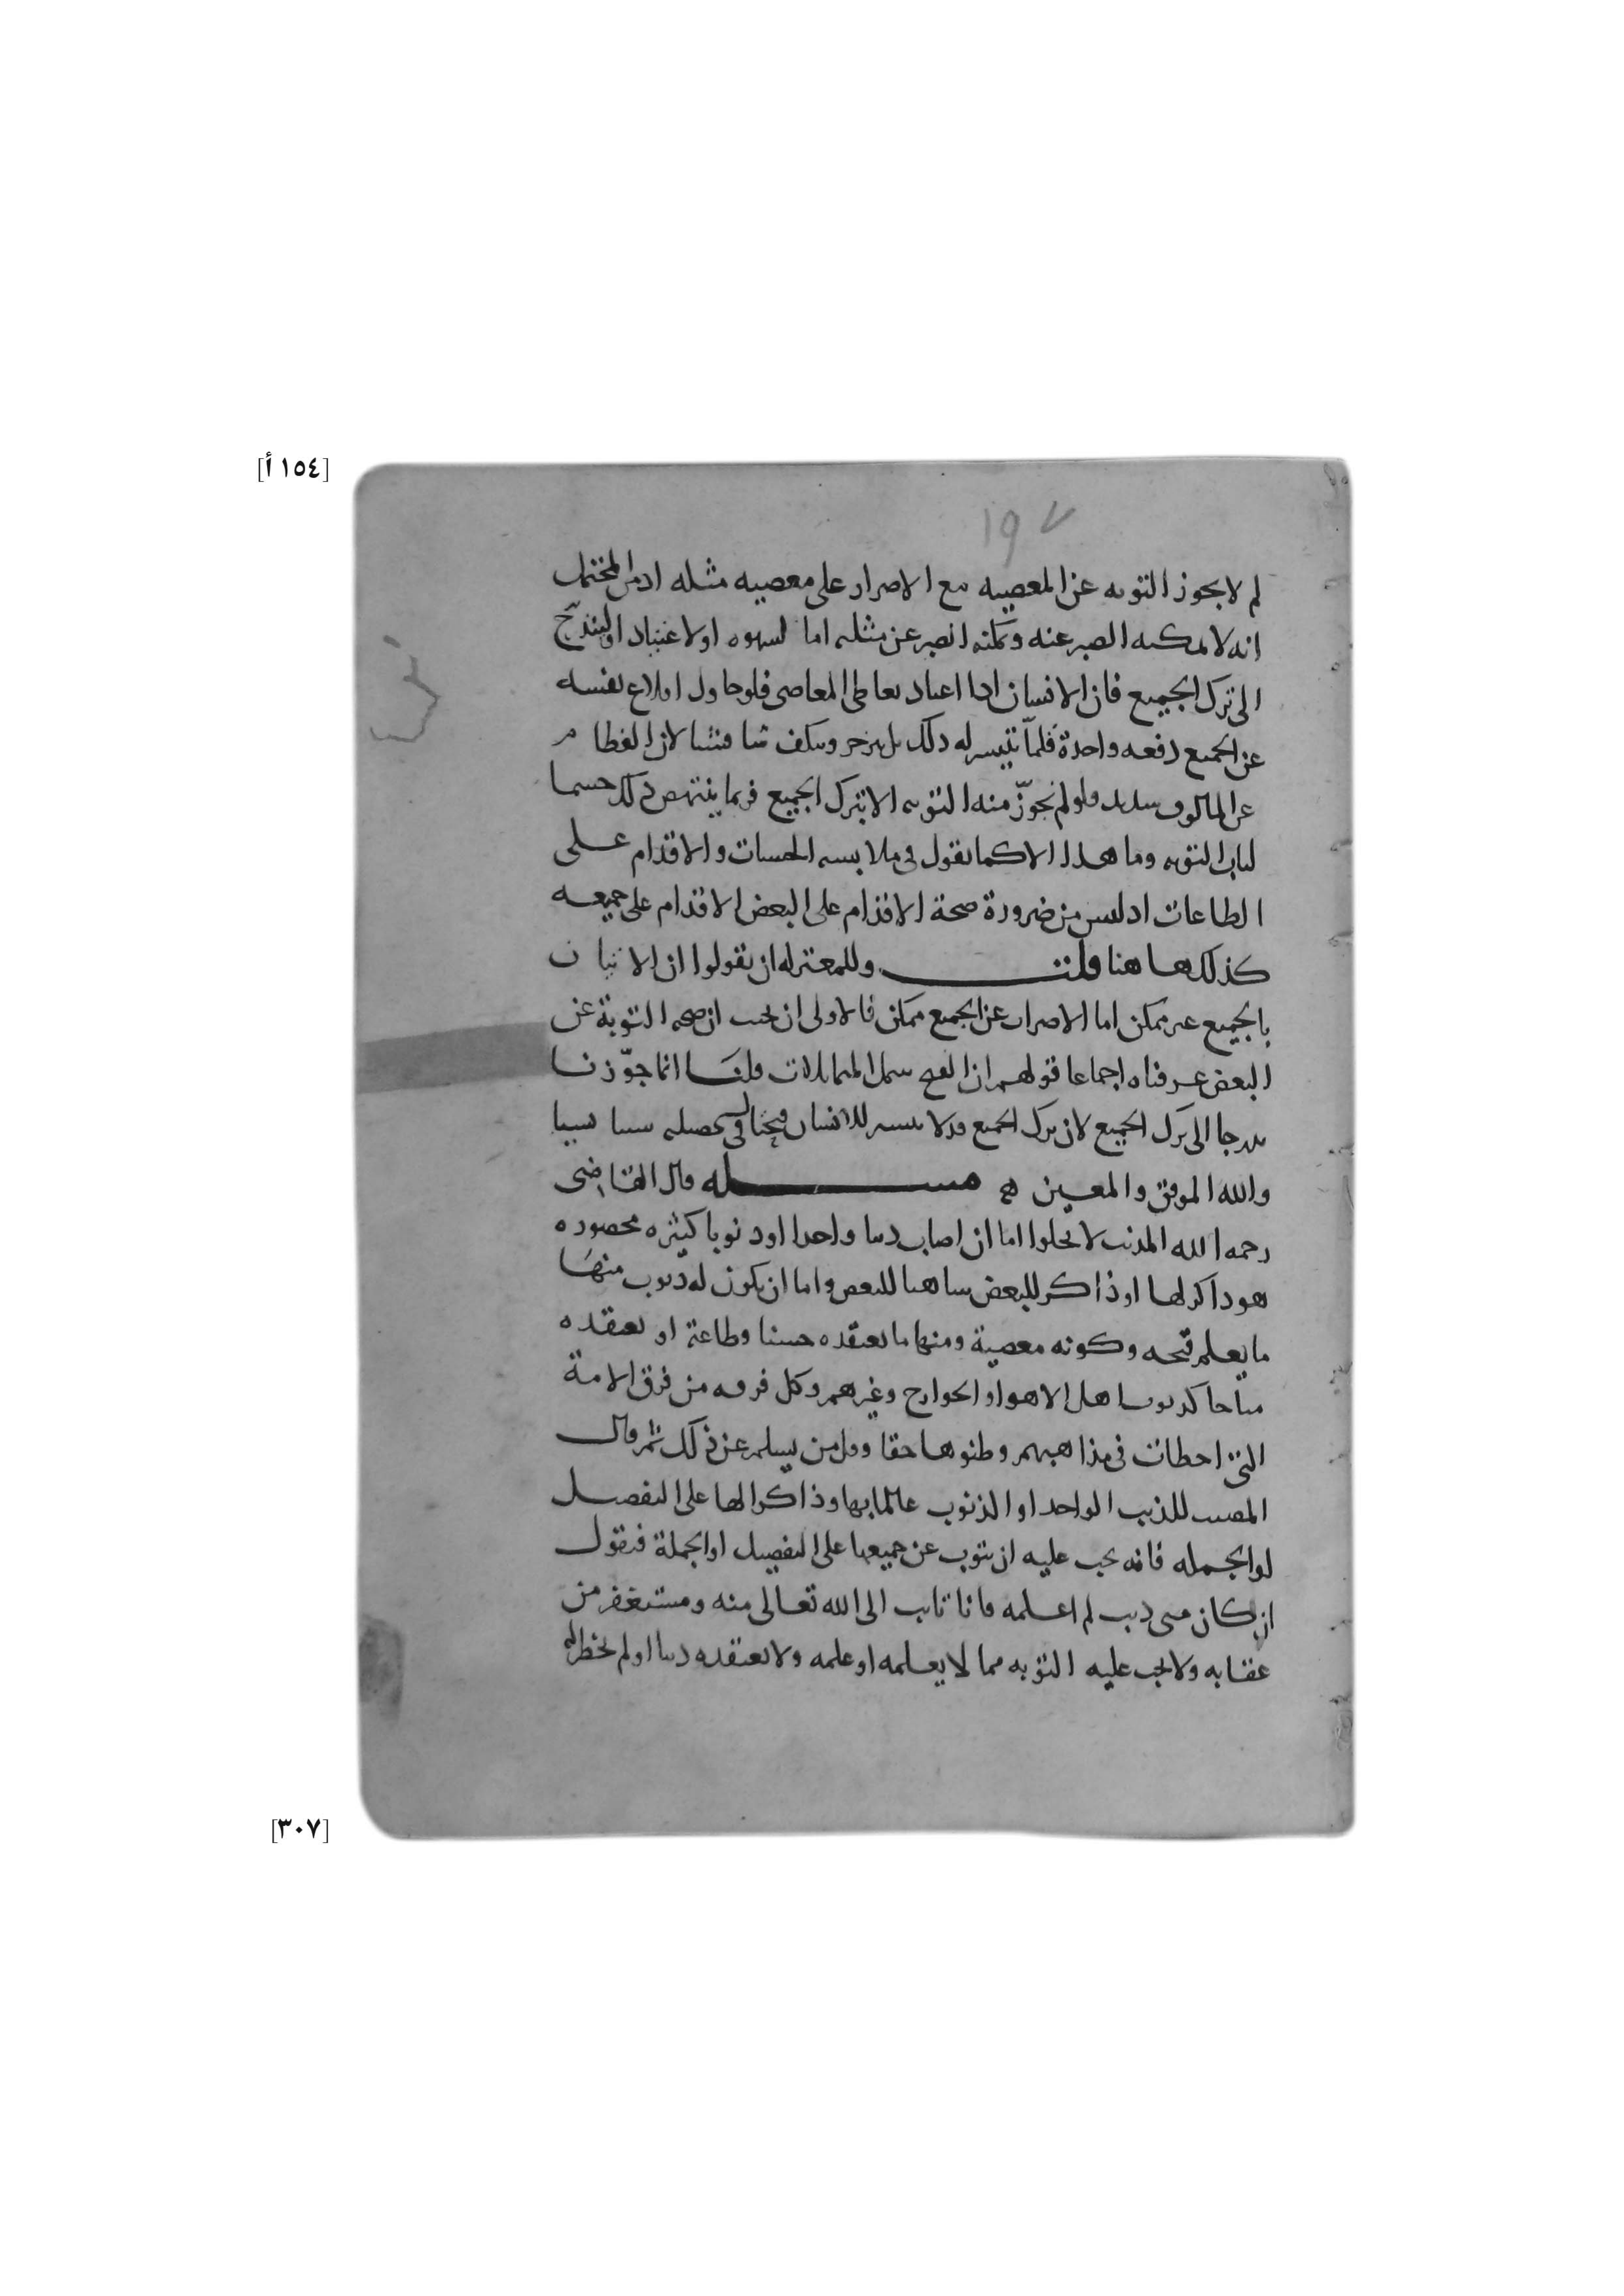 [١٥٤ أ]
١٩٧
لم لا يجوز التوبه عن المعصيه مع الاصرار على معصيه مثله اد من المحتمل
انه لا يمكنه الصبر عنه ويمكنه الصبر عن مثله اما لسهوه او لاعتياد او ليتدرج
الى ترك الجميع فان الانسان ادا اعتاد تعاطى المعاصى فلو حاول اقلاع نفسه
عن الجميع دفعه واحدة فلما يتيسر له دلك بل ينزجر وينكف شيا فشيا لان الفطام
عن المالوف شديد فلو لم نجوّز منه التوبه الا بترك الجميع فربما ينتهض ذلك حسما
لباب التوبه وما هدا الا كما نقول فى ملابسه الحسنات والاقدام على
الطاعات اد ليس من ضرورة صحة الاقدام على البعض الاقدام على جميعه
كذلك هاهنا قلت وللمعتزله ان يقولوا ان الاتيان
بالجميع غير ممكن اما الاضراب عن الجميع ممكن فالاولى ان نجيب ان صحه التوبة عن
البعض عرفناه اجماعا قولهم ان القبح يشمل المتماثلات قلنا انما جوّزنا
تدرجا الى ترك الجميع لان ترك الجميع قد لا يتيسر للانسان فيحتال فى تحصيله شيا شيا
والله الموفق والمعين مسله قال القاضى
رحمه الله المدنب لا يخلوا اما ان اصاب دنبا واحدا او دنوبا كثيره محصوره
هو داكر لها او ذاكر للبعض ساهيا للبعض واما ان يكون له دنوب منها
ما يعلم قبحه وكونه معصية ومنها ما يعتقده حسنا وطاعة او يعتقده
مباحا كدنوب اهل الاهوا والخوارج وغيرهم وكل فرقه من فرق الامة
التى اخطات فى مذاهبهم وظنوها حقا وقل من يسلم عن ذلك ثم قال
المصيب للذنب الواحد او الذنوب عالما بها وذاكرا لها على التفصيل
او الجمله فانه يجب عليه ان يتوب عن جميعها على التفصيل او الجملة فيقول
ان كان منى دنب لم اعلمه فانا تايب الى الله تعالى منه ومستغفر من
عقابه ولا يجب عليه التوبه مما لا يعلمه او علمه ولا يعتقده دنبا او لم يخطر له
[٣٠٧]